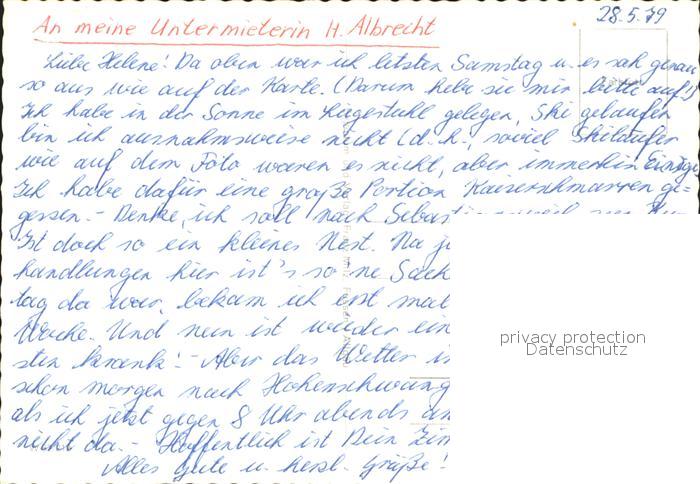 28.5.79
An meine Untermieterin H. Albrecht
Liebe Helene! Da oben war ich letzten Samstag u. es sah genau
so aus wie auf der Karte. (Darum hebe sie mir bitte auf!)
Ich habe in der Sonne im Liegestuhl gelegen, Ski gelaufen
bin ich ausnahmsweise nicht (d.h., soviel Skiläufer
wie auf dem Foto waren es nicht, aber immerhin Einige
Ich habe dafür eine große Portion Kaiserschmarren ge-
gessen. - Denke, ich soll nach
Ist doch so ein kleines Nest. Na
handlungen hier ist's so 'ne Sach
tag da war, bekam ich erst mal
Woche. Und nun ist wieder ein
sten krank! - Aber das Wetter is
schon morgen nach Hohenschwang
als ich jetzt gegen 8 Uhr abends an
nicht da. - Hoffentlich ist Dein Zim
Alles Gute u. herzl. Grüße!
privacy protection
Datenschutz